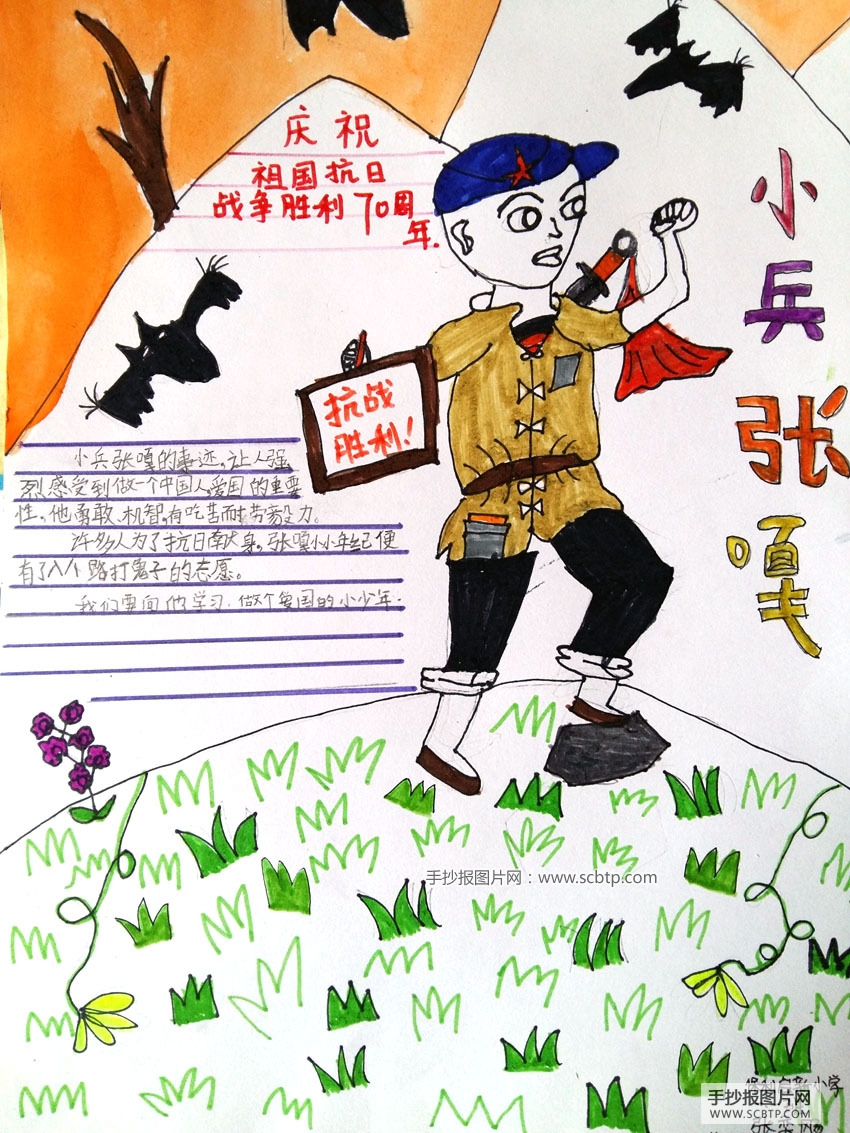 庆祝
祖国抗日
战争胜利70周
年.
小兵张嘎
抗战
胜利!
小兵张嘎的事迹,让人强
烈感受到做一个中国人,爱国的重要
性。他勇敢、机智,有吃苦而耐劳毅力。
许多人为了抗日献身,张嘎小小年纪便
有了入个路打鬼子的志愿。
我们要向他学习.做个爱国的小少年.
手抄报图片网:www.scbtp.com
小学
手抄报图片网
WWW.SCBTP.COM